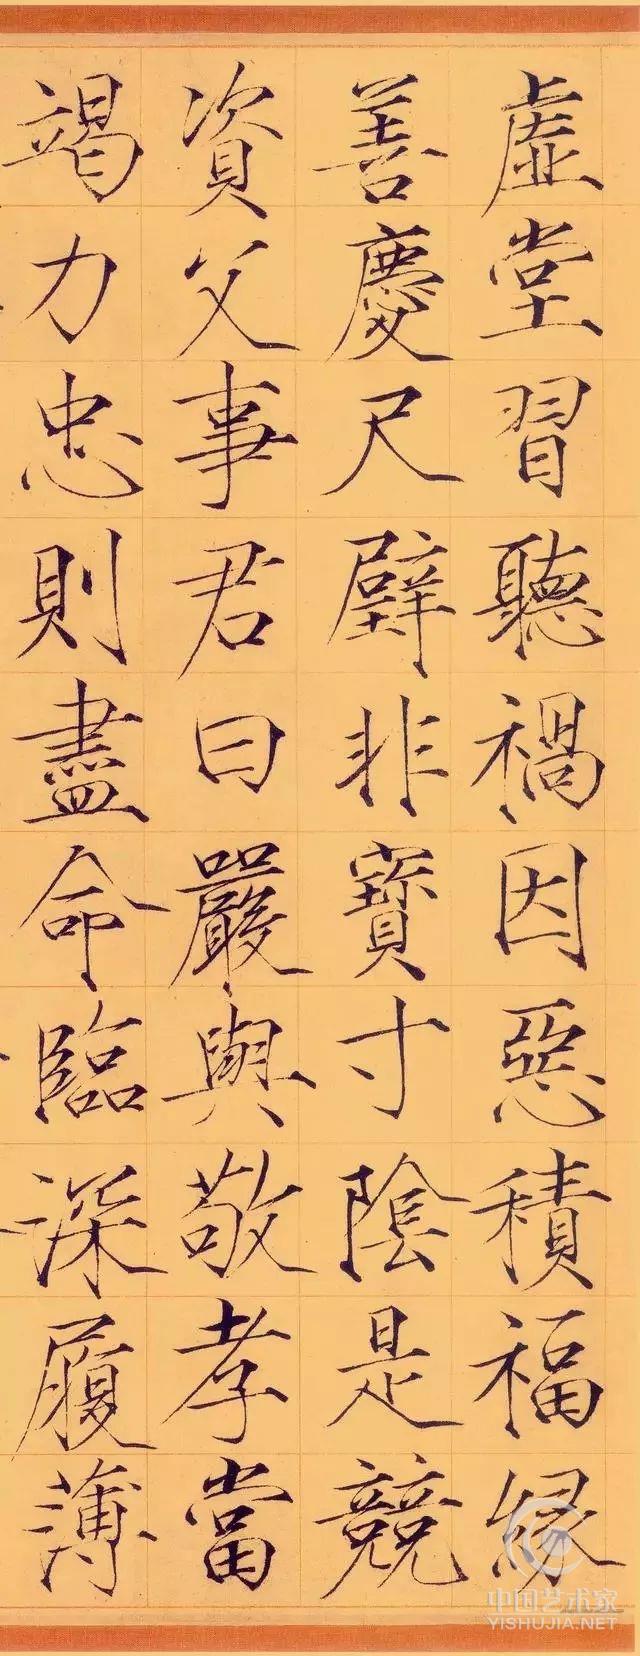 虛堂習聽禍因惡積福緣
善慶尺璧非寶寸陰是競
資父事君曰嚴與敬孝當
竭力忠則盡命臨深履薄
中国艺术家
YISHUJIA.NET